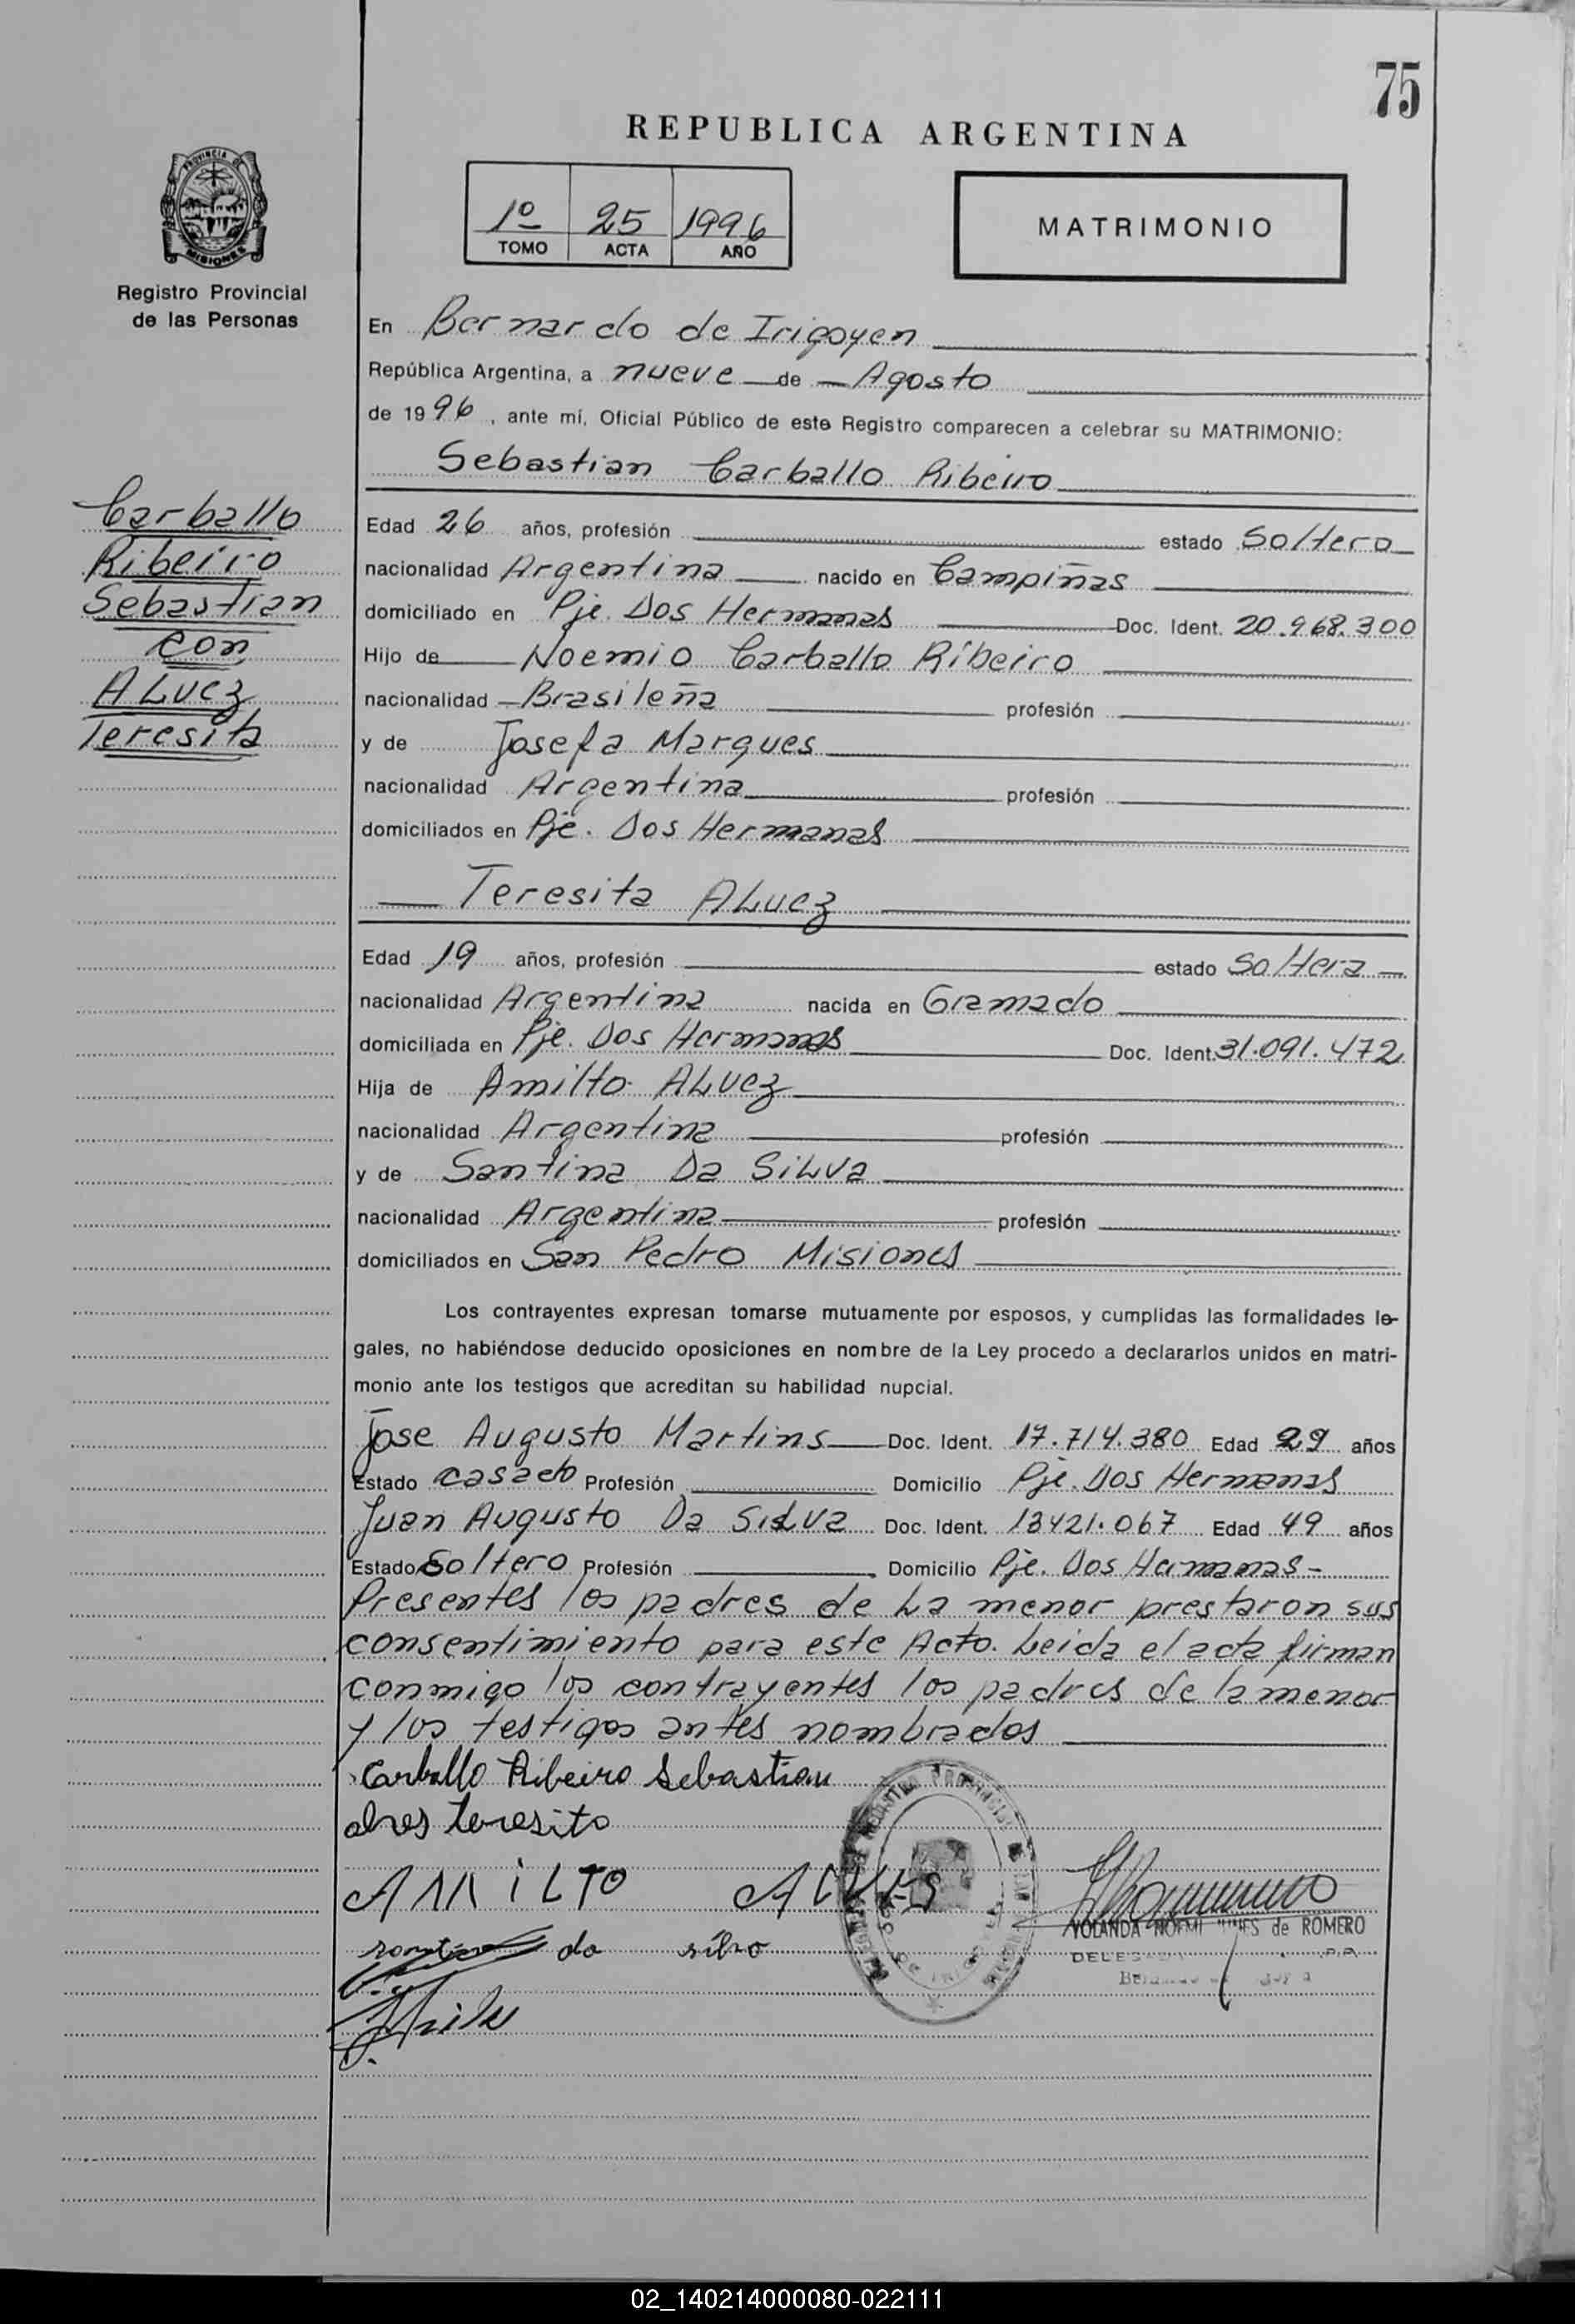 75
REPUBLICA ARGENTINA
PROVINCIA DE
MISIONES
Registro Provincial
de las Personas
1º 25 1996
TOMO ACTA AÑO
MATRIMONIO
En Bernardo de Irigoyen
República Argentina, a nueve de Agosto
de 1996, ante mí, Oficial Público de este Registro comparecen a celebrar su MATRIMONIO:
Sebastian Carballo Ribeiro
Carballo
Ribeiro
Sebastian
con
ALvez
Teresita
Edad 26 años, profesión estado Soltero
nacionalidad Argentina nacido en Campiñas
domiciliado en Pje. Dos Hermanas Doc. Ident. 20.968.300
Hijo de Noemio Carballo Ribeiro
nacionalidad Brasileña profesión
y de Josefa Marques
nacionalidad Argentina profesión
domiciliados en Pje. Dos Hermanas
Teresita ALvez
Edad 19 años, profesión estado Soltera
nacionalidad Argentina nacida en Gramado
domiciliada en Pje. Dos Hermanas Doc. Ident. 31.091.472
Hija de Amilto ALvez
nacionalidad Argentina profesión
y de Santina Da SiLva
nacionalidad Argentina profesión
domiciliados en San Pedro Misiones
Los contrayentes expresan tomarse mutuamente por esposos, y cumplidas las formalidades le-
gales, no habiéndose deducido oposiciones en nombre de la Ley procedo a declararlos unidos en matri-
monio ante los testigos que acreditan su habilidad nupcial.
Jose Augusto Martins Doc. Ident. 17.714.380 Edad 29 años
Estado casado Profesión Domicilio Pje. Dos Hermanas
Juan Augusto Da SiLva Doc. Ident. 13421.067 Edad 49 años
Estado Soltero Profesión Domicilio Pje. Dos Hermanas-
Presentes los padres de La menor prestaron sus
consentimiento para este Acto. Leida el acta firman
conmigo los contrayentes los padres de la menor
y los testigos antes nombrados
Carballo Ribeiro Sebastian
alves teresita
AMiLTO ALVES
da silva
YOLANDA NOEMI de ROMERO
02_140214000080-022111